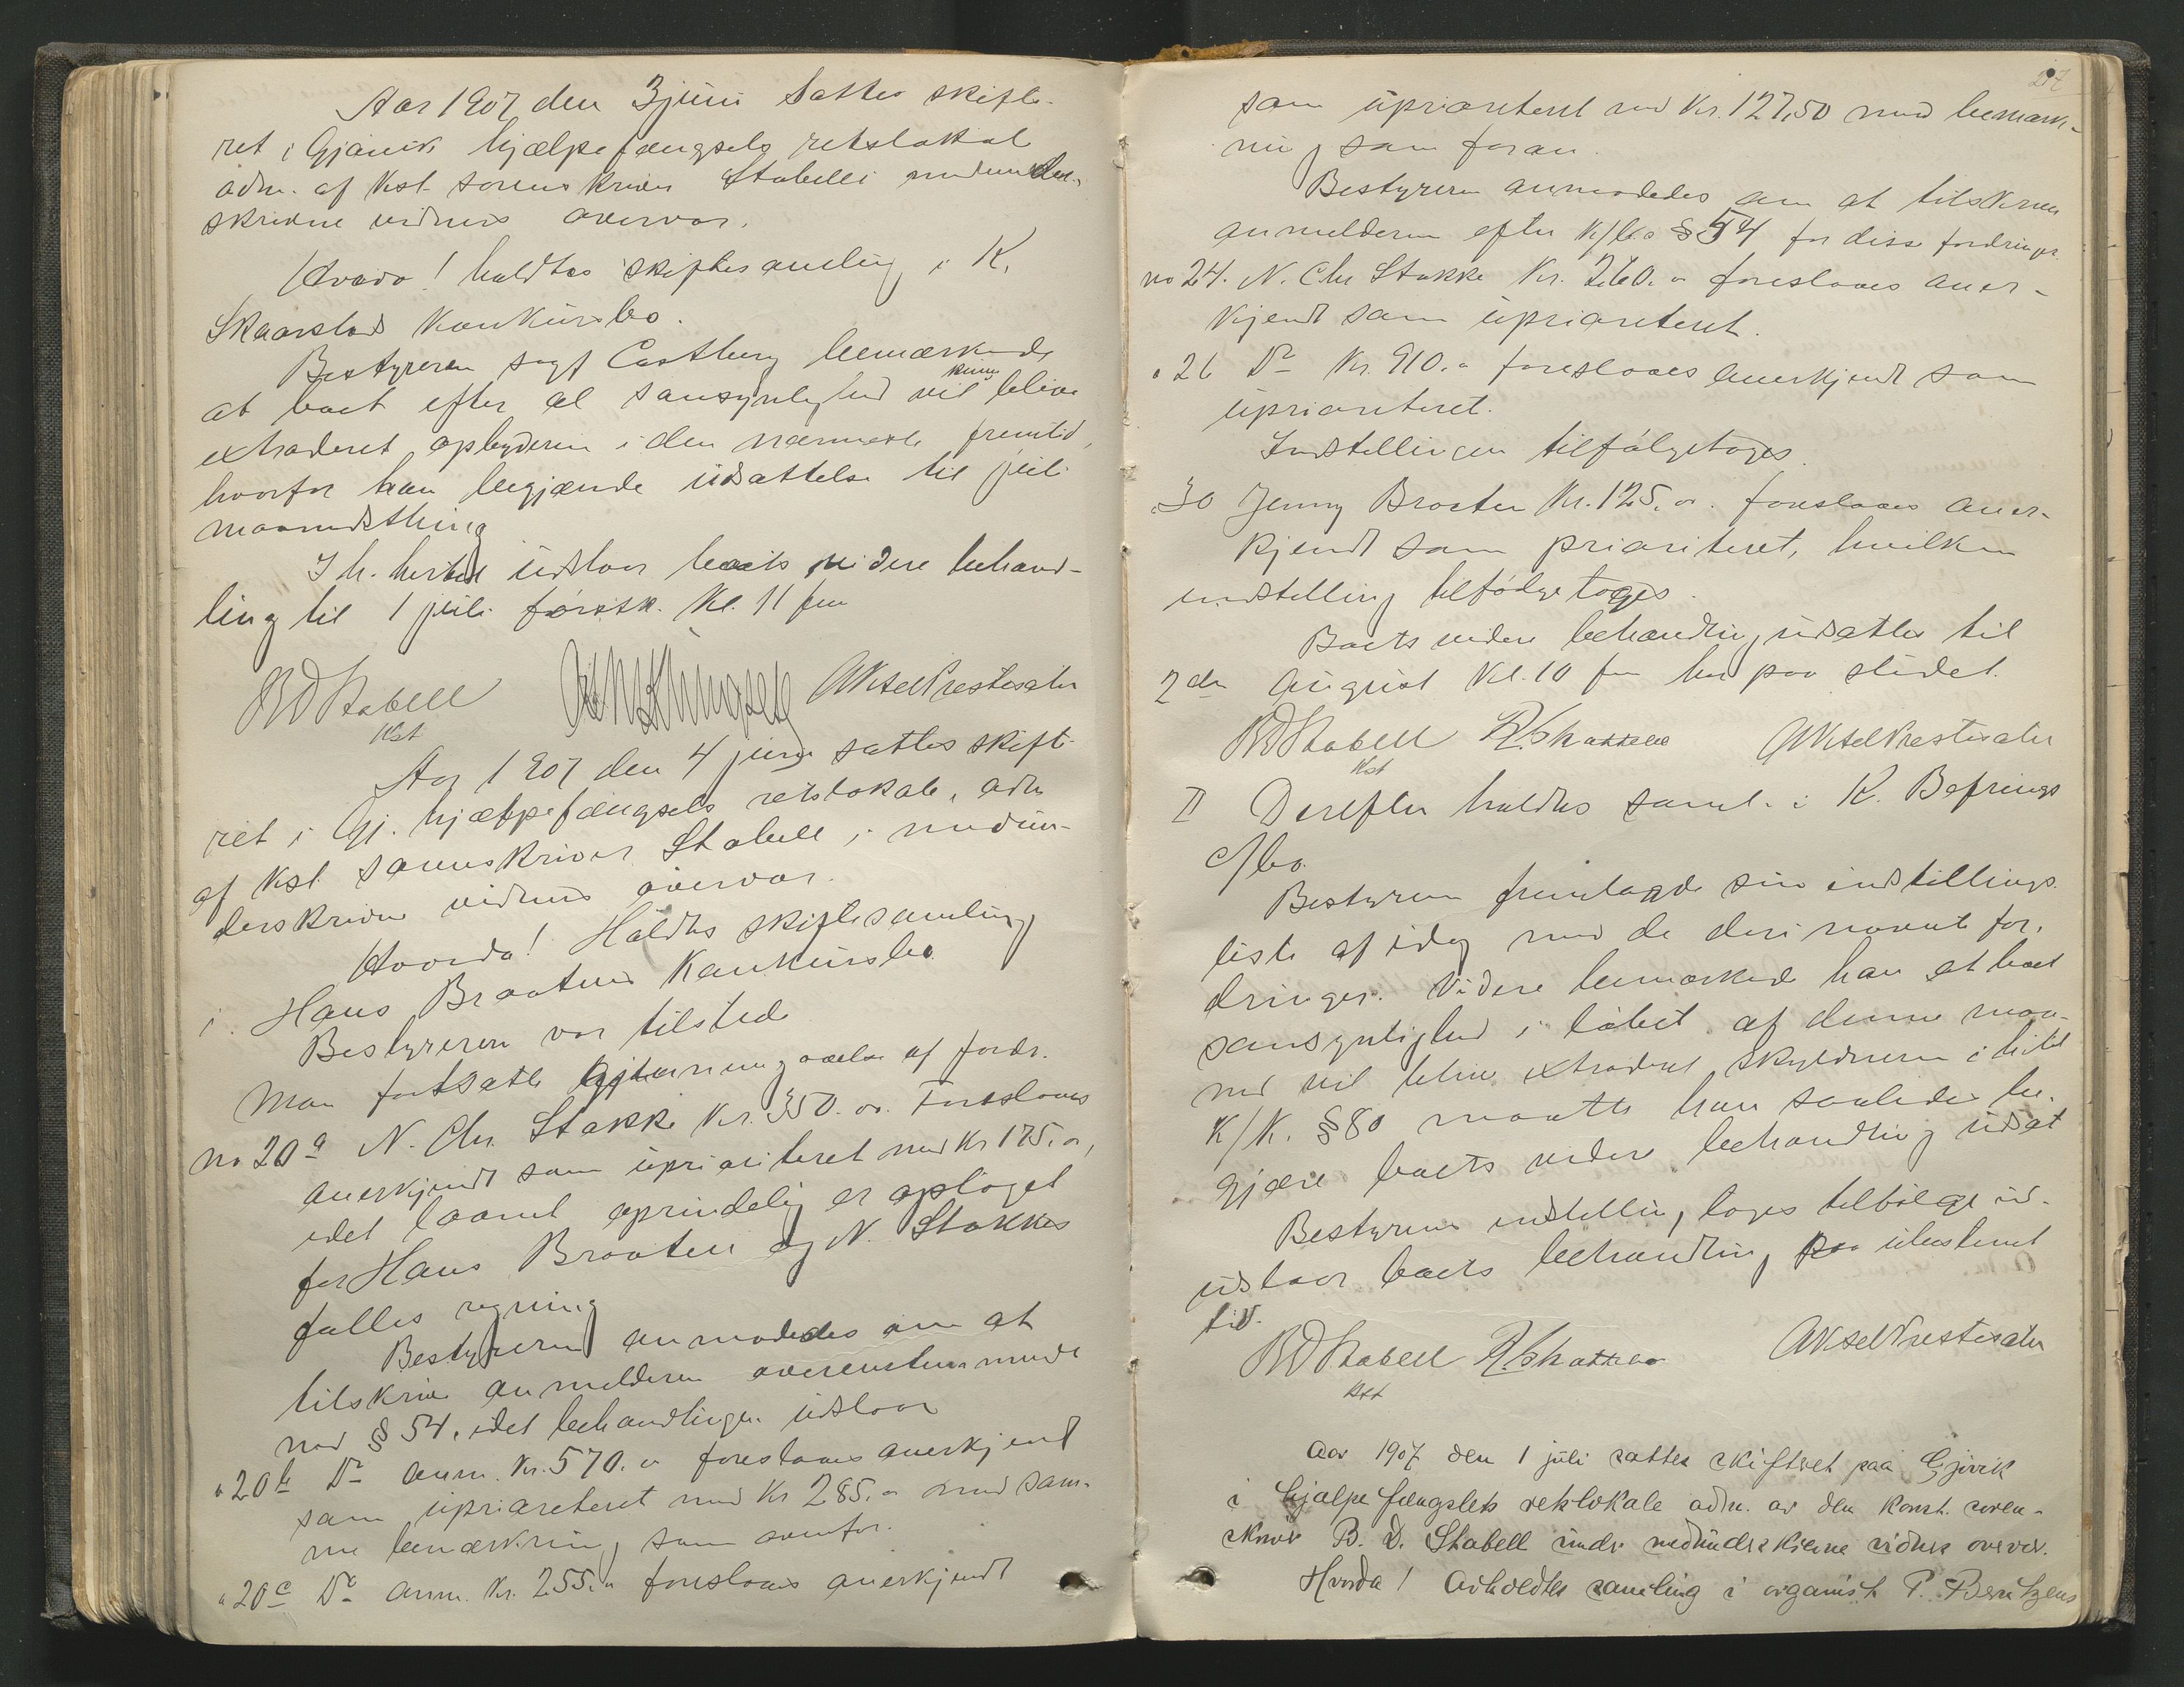 Aar 1907 den 3 juni sattes skifte-
ret i Gjøvik hjælpefængsels retslokal
adm. af kst. sorenskriver Stabell i nedenunder-
skrevne vidners overvær.
Hvorda! holdtes skiftesamling i K.
Skaarstads konkursbo.
Bestyreren sagf Castberg bemærkede
at boet efter al sansynlighed vil kunne blive
extraderet opbyderen i den nærmeste fremtid,
hvorfor han begjærede udsættelse til juli
maanedsthing
I h. hertil udstaar boets videre behand-
ling til 1 juli førstk. kl. 11 fm
BDStabell
Kst
Aksel Prestesater
Aar 1907 den 4 juni sattes skifte-
ret i Gj. hjælpefængsels retslokale, adm
af kst. sorenskriver Stabell, i nedun-
derskrevne vidners overvær.
Hvorda! Holdtes skiftesamling
i Hans Braatens konkursbo
Bestyreren var tilstede
Man fortsatte gjennemgaaelse af fordr.
No 20a N. Chr. Stakke Kr. 350.00. Foreslaaes
anerkjendt som uprioriteret med Kr 175.00,
idet laanet oprindelig er optaget
for Hans Braaten og N. Stakkes
fælles regning
Bestyreren anmodedes om at
tilskrive anmelderen overenstemmende
med § 54, idet behandlingen udstaar
" 20b Do anm. Kr. 570.00 foreslaaes anerkjendt
som uprioriteret med Kr 285.00 med sam-
me bemærkning som ovenfor.
" 20c Do anm. Kr. 255.00 foreslaaes anerkjendt
27
som uprioriteret med Kr. 127,50 med bemærk-
ning som foran.
Bestyreren anmodedes om at tilskrive
anmelderen efter K/l.s § 54 for disse fordringer.
No 24. N. Chr Stakke Kr. 260.00 foreslaaes aner-
kjendt som uprioriteret.
" 26 Do Kr. 910.00 foreslaaes anerkjendt som
uprioriteret.
Indstillingen tilfølgetoges.
" 30 Jenny Braaten Kr. 125.00. foreslaaes aner-
kjendt som prioriteret, hvilken
indstilling tilfølgetoges.
Boets videre behandling udsattes til
2den august kl. 10 fm her paa stedet.
BDStabell
Kst
Aksel Prestesater
II Derefter holdtes saml. i K. Befrings
c/bo.
Bestyreren fremlagde sin indstillings
liste af idag med de deri nævnte for-
dringer. Videre bemærkede han at boet
sansynlighed i løbet af denne maa-
ned vil blive extraderet skyldneren i hht
K/K. § 80 maatte han saaledes be-
gjære boets videre behandling udsat
Bestyrerens indstilling toges tilfølge ud-
udstaar boets behandling paa ubestemt
tid.
BDStabell
Kst
Aksel Prestesater
Aar 1907 den 1 juli sattes skifteret paa Gjøvik
i hjælpefængslets retslokale adm. av den konst. soren-
skriver B. D. Stabell under nedunderskrevne vidners overvær.
Hvorda! Avholdtes samling i organist P. Berntzens